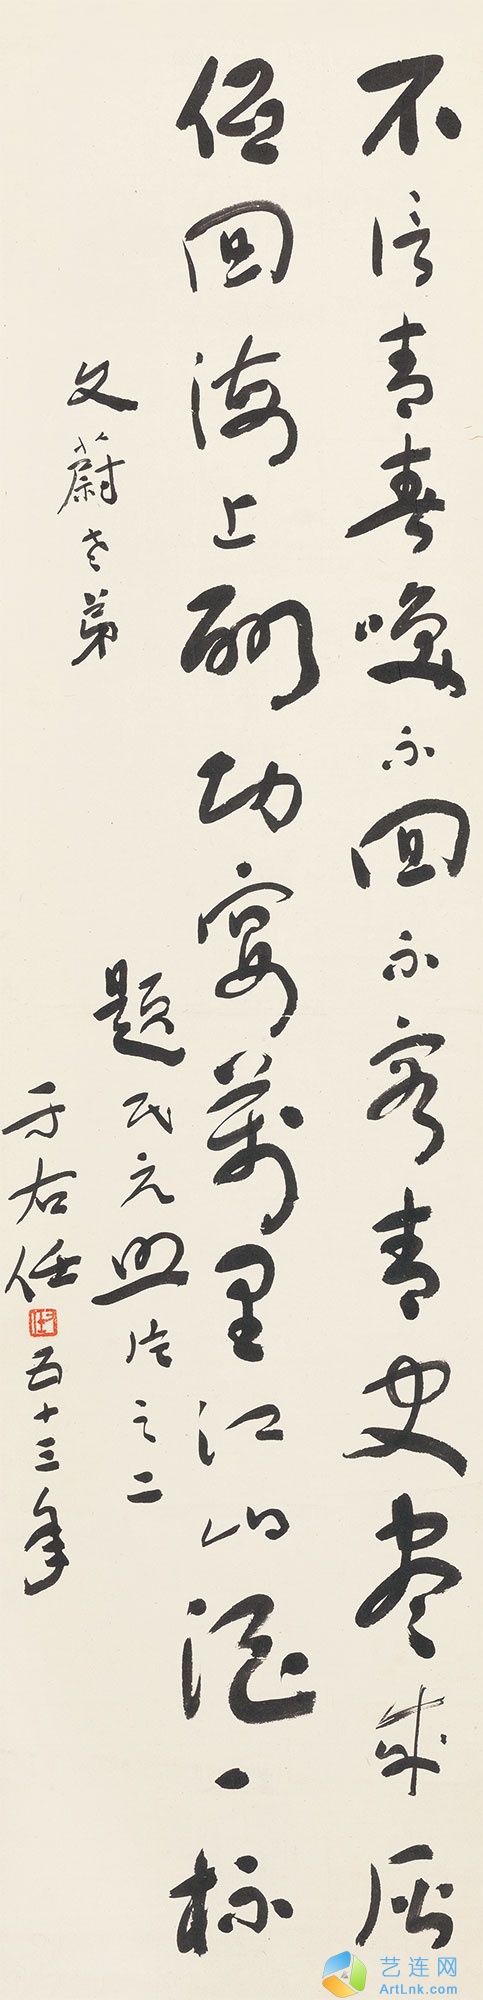 不信青春喚不回不容青史盡成灰
低回海上酬功宴萬里江山酒一杯
題民元照片之二
文蔚老弟
于右任
五十三年
艺连网
ArtLnk.com